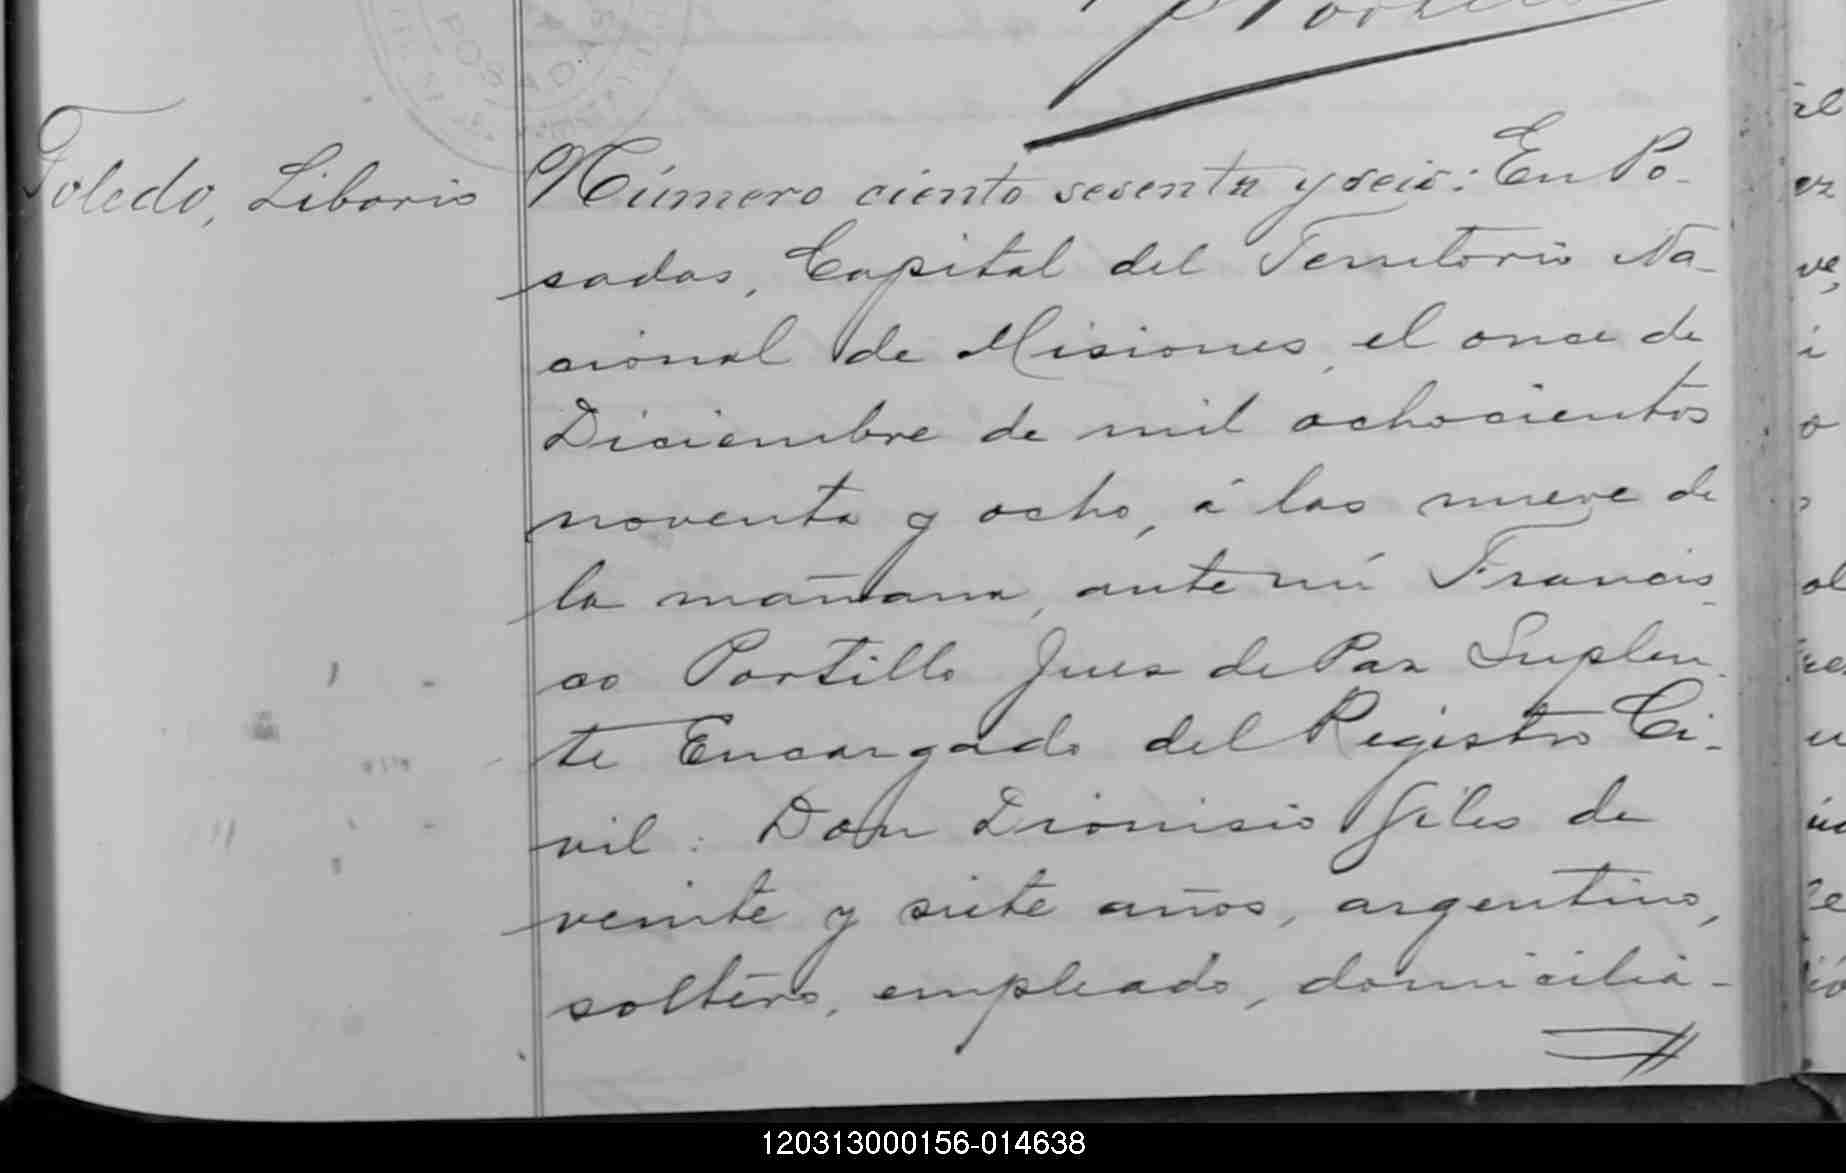 Portillo
POSADAS
Toledo, Liborio
Número ciento sesenta y seis: En Po-
sadas, Capital del Territorio Na-
cional de Misiones, el once de
Diciembre de mil ochocientos
noventa y ocho, á las nueve de
la mañana, ante mí Francis-
co Portillo Juez de Paz Suplen-
te Encargado del Registro Ci-
vil: Don Dionisio Giles de
veinte y siete años, argentino,
soltero, empleado, domicilia-
120313000156-014638